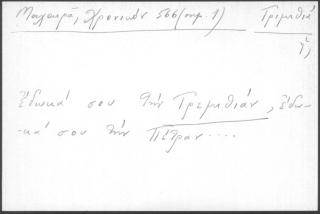 Μαχαιρᾶ, Χρονικόν 566 (σημ. 1) Τριμιθιά
ἔδωκά σου τὴν Τρεμιθιάν, ἔδω-
-κά σου τὴν Πέτραν....